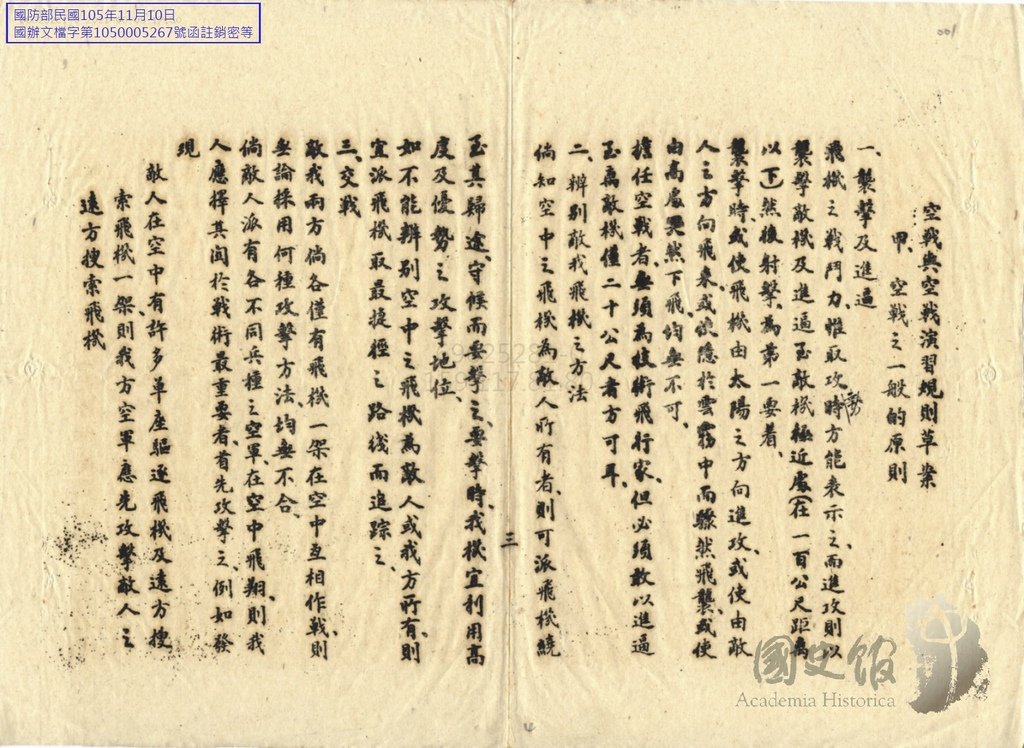 國防部民國105年11月10日
國辦文檔字第1050005267號函註銷密等
001
空戰與空戰演習規則草案
甲、空戰之一般的原則
一、襲擊及進逼
飛機之戰鬥力、惟取攻勢時方能表示之、而進攻則以
襲擊敵機及進逼至敵機極近處(在一百公尺距離
以下)然後射擊、為第一要着、
襲擊時、或使飛機由太陽之方向進攻、或使由敵
人之方向飛來、或使隱於雲霧中而驟然飛襲、或使
由高處突然下飛、均無不可、
擔任空戰者、無須為技術飛行家、但必須敢以進逼
至离敵機僅二十公尺者方可耳、
二、辨别敵我飛機之方法
倘知空中之飛機為敵人所有者、則可派飛機繞
三
至其歸途、守候而要擊之、要擊時、我機宜利用高
度及優勢之攻擊地位、
如不能辨别空中之飛機為敵人或我方所有、則
宜派飛機取最捷徑之路线而追踪之、
三、交戰
敵我兩方倘各僅有飛機一架在空中互相作戰、則
無論採用何種攻擊方法、均無不合、
倘敵人派有各不同兵種之空軍、在空中飛翔、則我
人應擇其関於戰術最重要者、首先攻擊之、例如發
現
敵人在空中有許多單座驅逐飛機及遠方搜
索飛機一架、則我方空軍應先攻擊敵人之
遠方搜索飛機
國史館
Academia Historica